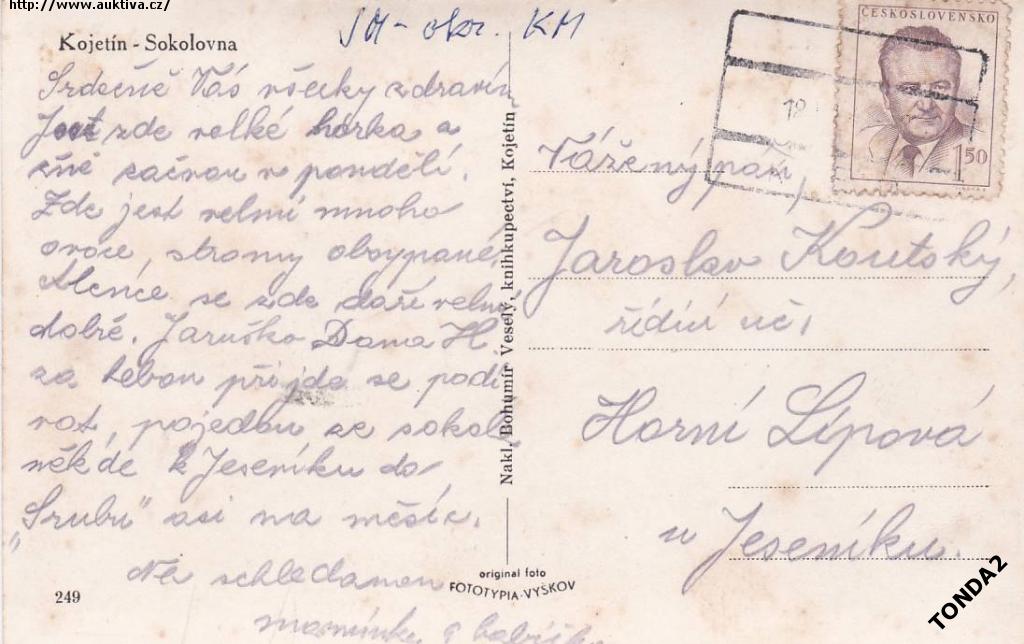 http://www.auktiva.cz/
SM - okr. KM
Kojetín - Sokolovna
Srdečně Vás všecky zdravím
Jest zde velké horka a
žně začnou v pondělí.
Zde jest velmi mnoho
ovoce, stromy obsypané,
Alence se zde daří velmi
dobře. Jaruško Dana H.
za tebou přijde se podí
vat, pojedou ze sokol
někde k Jeseníku do
„Srubu" asi na měsíc.
Na schledanou
maminka a babička
249
Nakl. Bohumír Veselý, knihkupectví, Kojetín
original foto
FOTOTYPIA-VYŠKOV
ČESKOSLOVENSKO
1.50
Vážený pán,
Jaroslav Koutský,
řídící uč.
Horní Lipová
u Jeseníku.
TONDA2